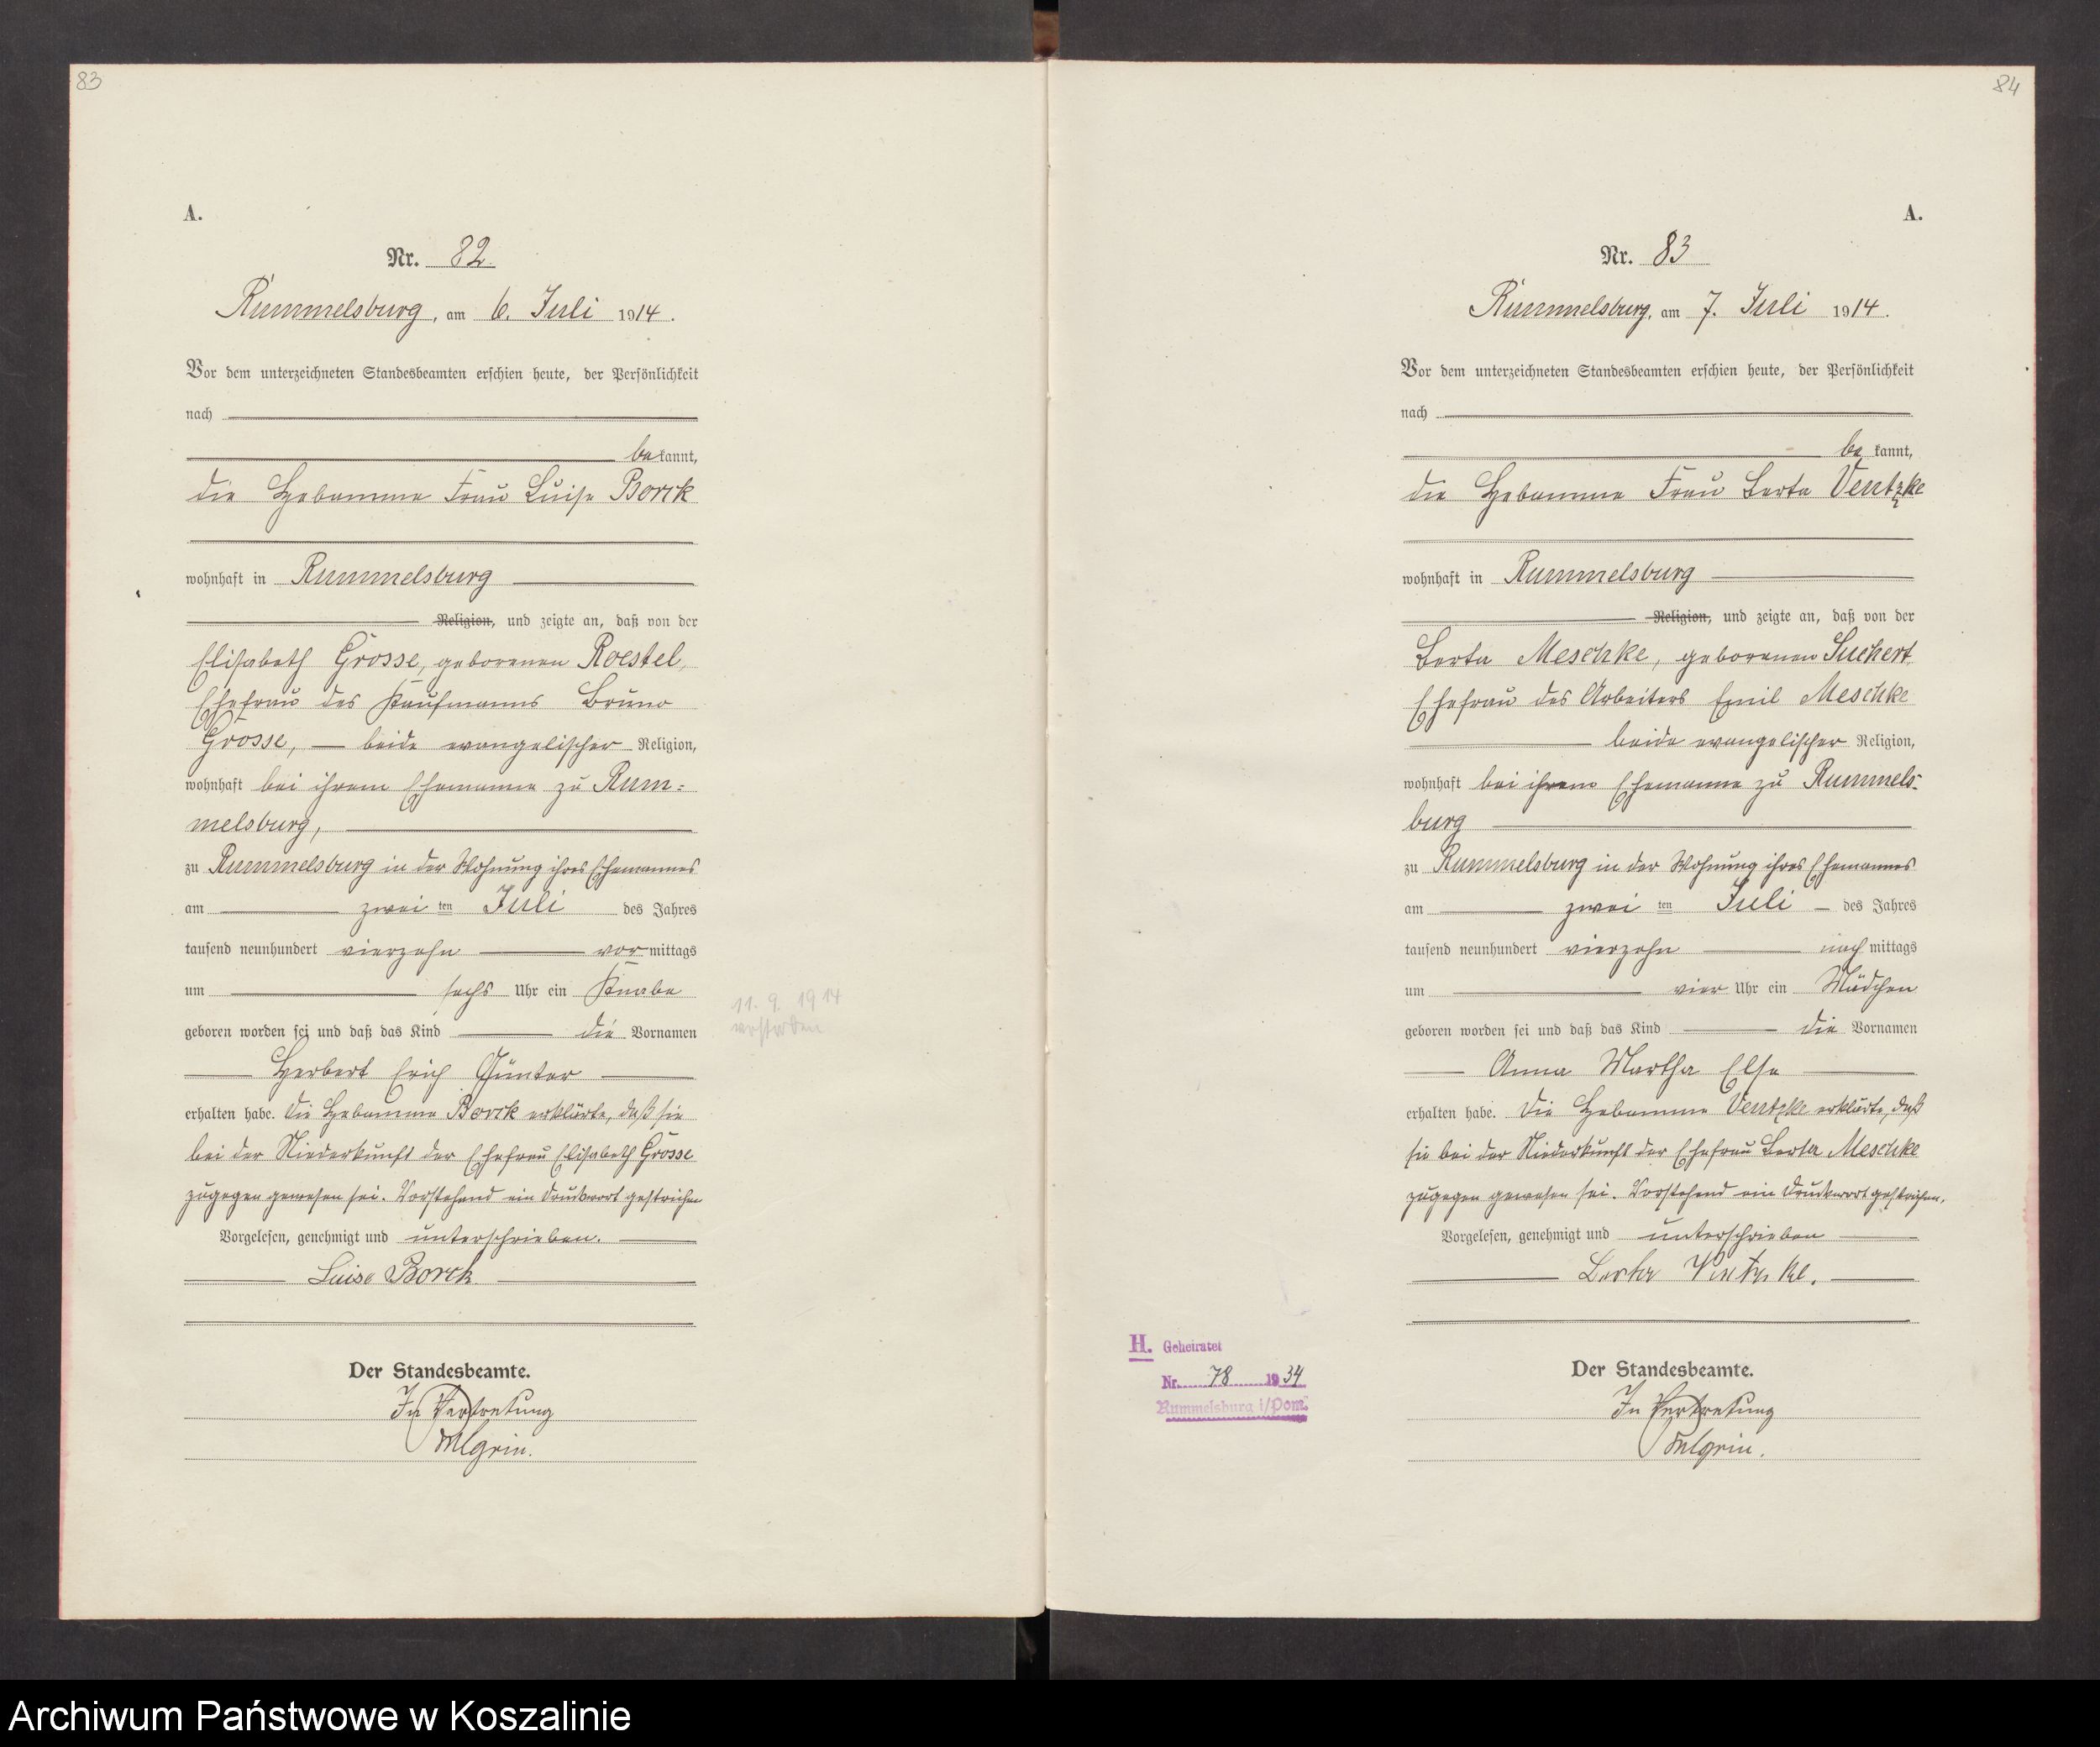 83
A.
Nr. 82.
Rummelsburg, am 6. Juli 1914.
Vor dem unterzeichneten Standesbeamten erschien heute, der Persönlichkeit
nach
bekannt,
die Hebamme Frau Luise Borck
wohnhaft in Rummelsburg
Religion, und zeigte an, daß von der
Elisabeth Grosse, geborenen Roestel,
Ehefrau des Kaufmanns Bruno
Grosse, — beide evangelischer Religion,
wohnhaft bei ihrem Ehemanne zu Rum=
melsburg,
zu Rummelsburg in der Wohnung ihres Ehemannes
am zwei ten Juli des Jahres
tausend neunhundert vierzehn vormittags
um sechs Uhr ein Knabe
geboren worden sei und daß das Kind die Vornamen
Herbert Erich Günter
erhalten habe. Die Hebamme Borck erklärte, daß sie
bei der Niederkunft der Ehefrau Elisabeth Grosse
zugegen gewesen sei. Vorstehend ein Druckwort gestrichen
Vorgelesen, genehmigt und unterschrieben.
Luise Borck
Der Standesbeamte.
In Vertretung
11. 9. 1914
verstorben
84
A.
Nr. 83
Rummelsburg, am 7. Juli 1914.
Vor dem unterzeichneten Standesbeamten erschien heute, der Persönlichkeit
nach
be kannt,
die Hebamme Frau Berta Ventzke
wohnhaft in Rummelsburg
Religion, und zeigte an, daß von der
Berta Meschke, geborenen Suckert
Ehefrau des Arbeiters Emil Meschke
beide evangelischer Religion,
wohnhaft bei ihrem Ehemanne zu Rummels=
burg
zu Rummelsburg in der Wohnung ihres Ehemannes
am zwei ten Juli — des Jahres
tausend neunhundert vierzehn nach mittags
um vier Uhr ein Mädchen
geboren worden sei und daß das Kind die Vornamen
Anna Martha Else
erhalten habe. Die Hebamme Ventzke erklärte, daß
sie bei der Niederkunft der Ehefrau Berta Meschke
zugegen gewesen sei. Vorstehend ein Druckwort gestrichen.
Vorgelesen, genehmigt und unterschrieben
Berta Ventzke.
Der Standesbeamte.
In Vertretung
H. Geheiratet
Nr. 78 1934
Rummelsburg i/Pom.
Archiwum Państwowe w Koszalinie